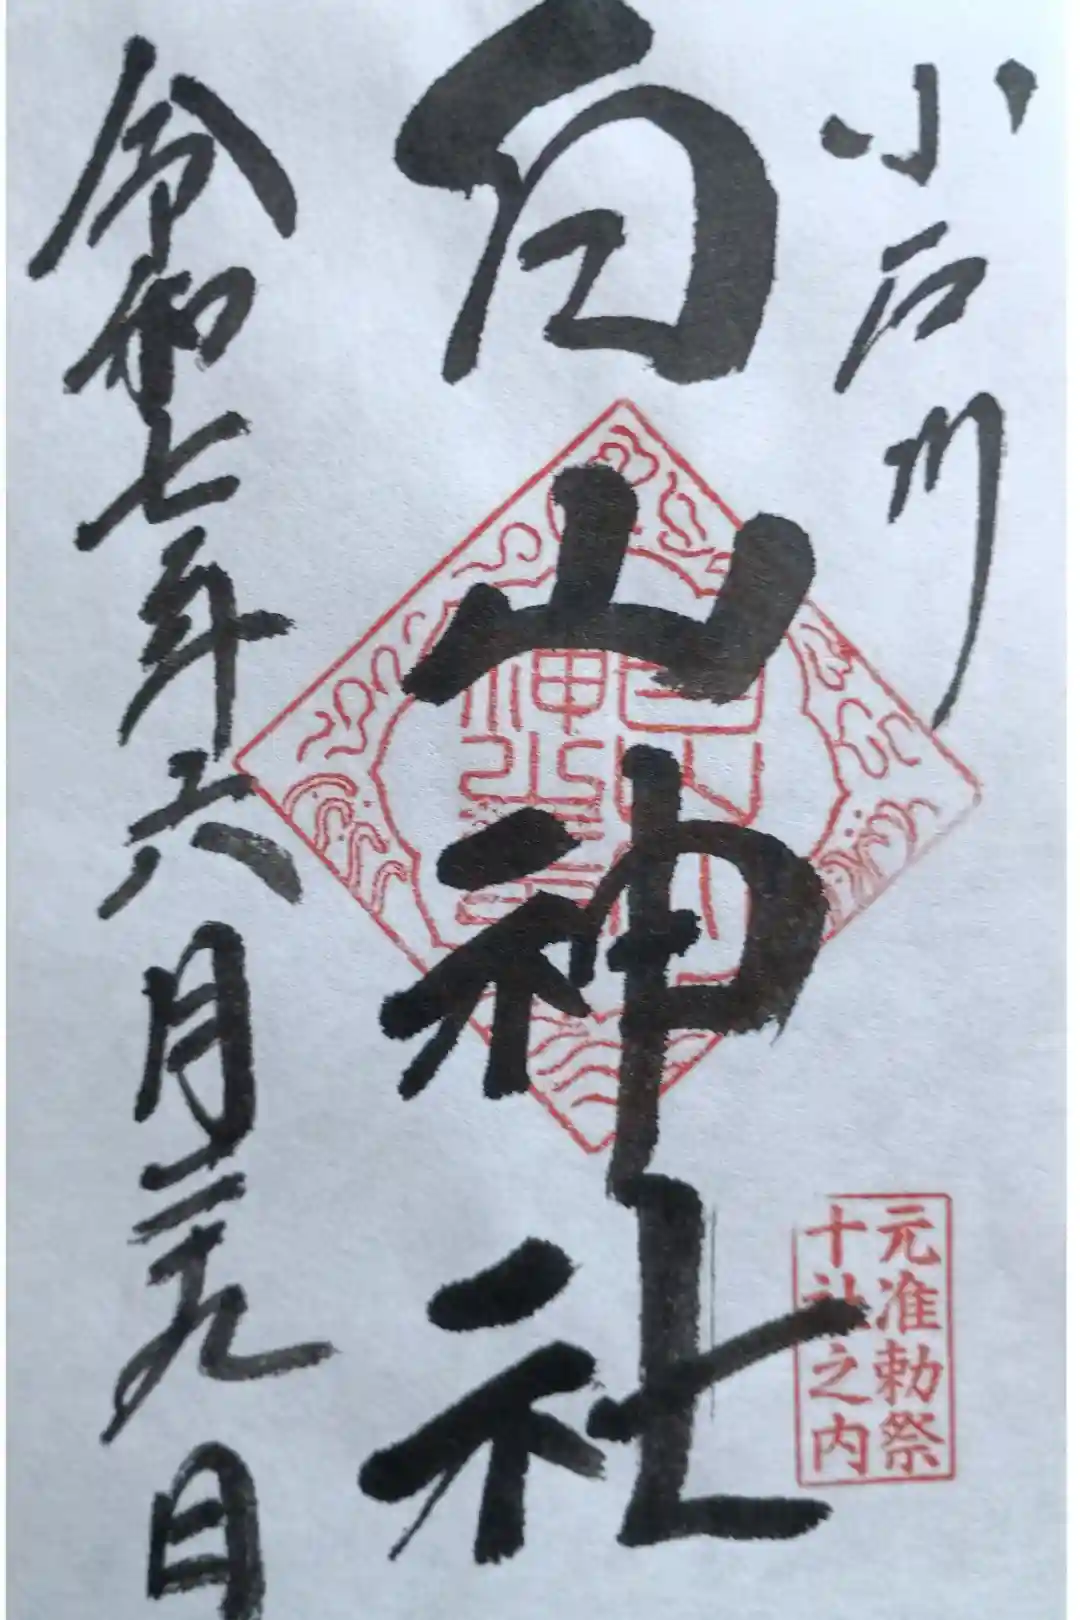 小石川
白山神社
元准勅祭
十社之内
令和七年六月二十九日